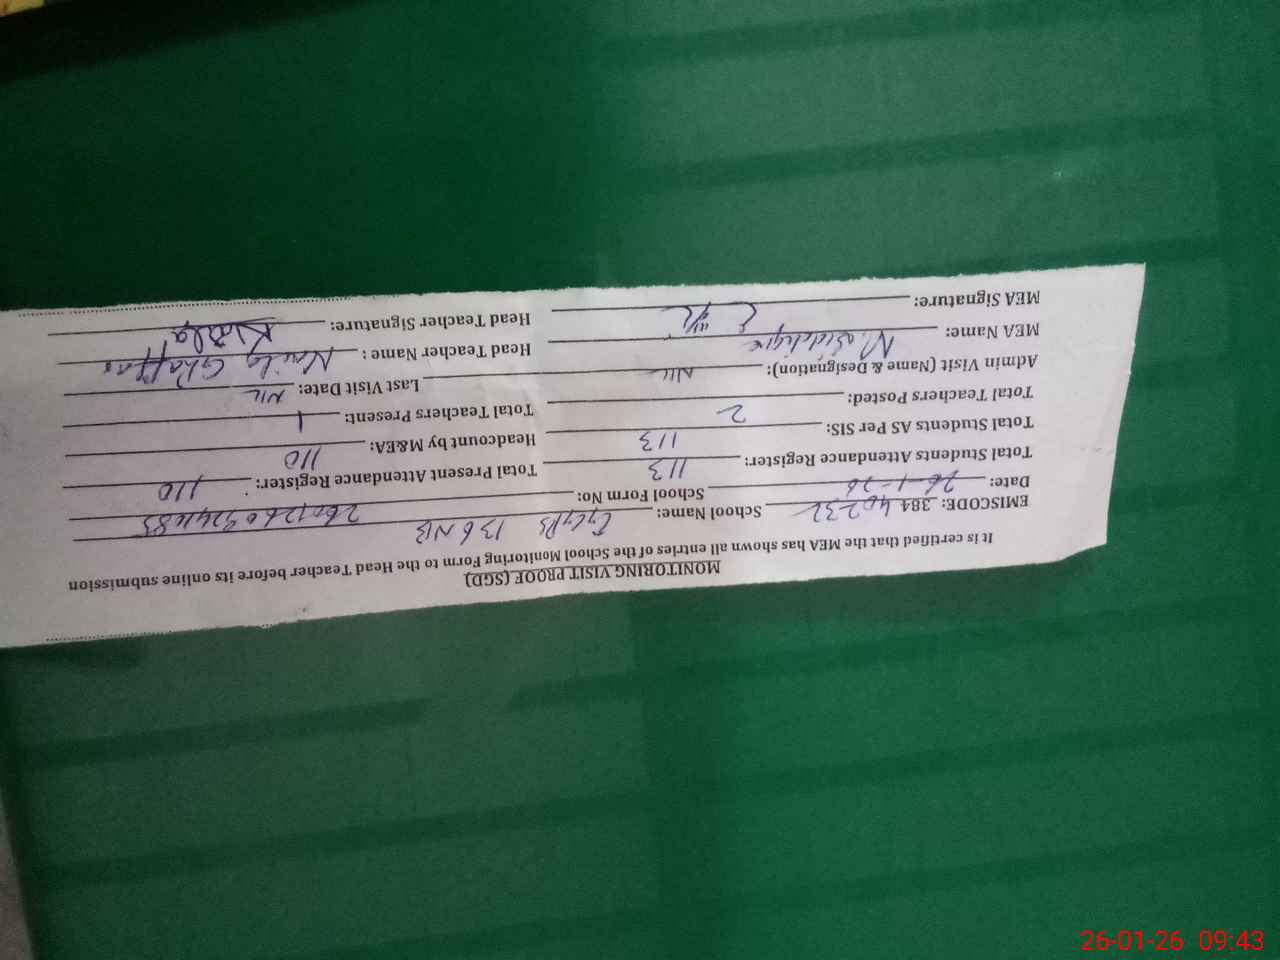 MONITORING VISIT PROOF (SGD)
It is certified that the MEA has shown all entries of the School Monitoring Form to the Head Teacher before its online submission
EMISCODE: 384 40232 School Name: 136 NB
Date: 26-1-26 School Form No:
Total Students Attendance Register: 113 Total Present Attendance Register: 110
Total Students AS Per SIS: 113 Headcount by M&EA: 110
Total Teachers Posted: 2 Total Teachers Present: 1
Admin Visit (Name & Designation): NIL Last Visit Date: NIL
MEA Name: M. Siddique Head Teacher Name : Naila Ghaffar
MEA Signature: Head Teacher Signature: Naila
26-01-26 09:43